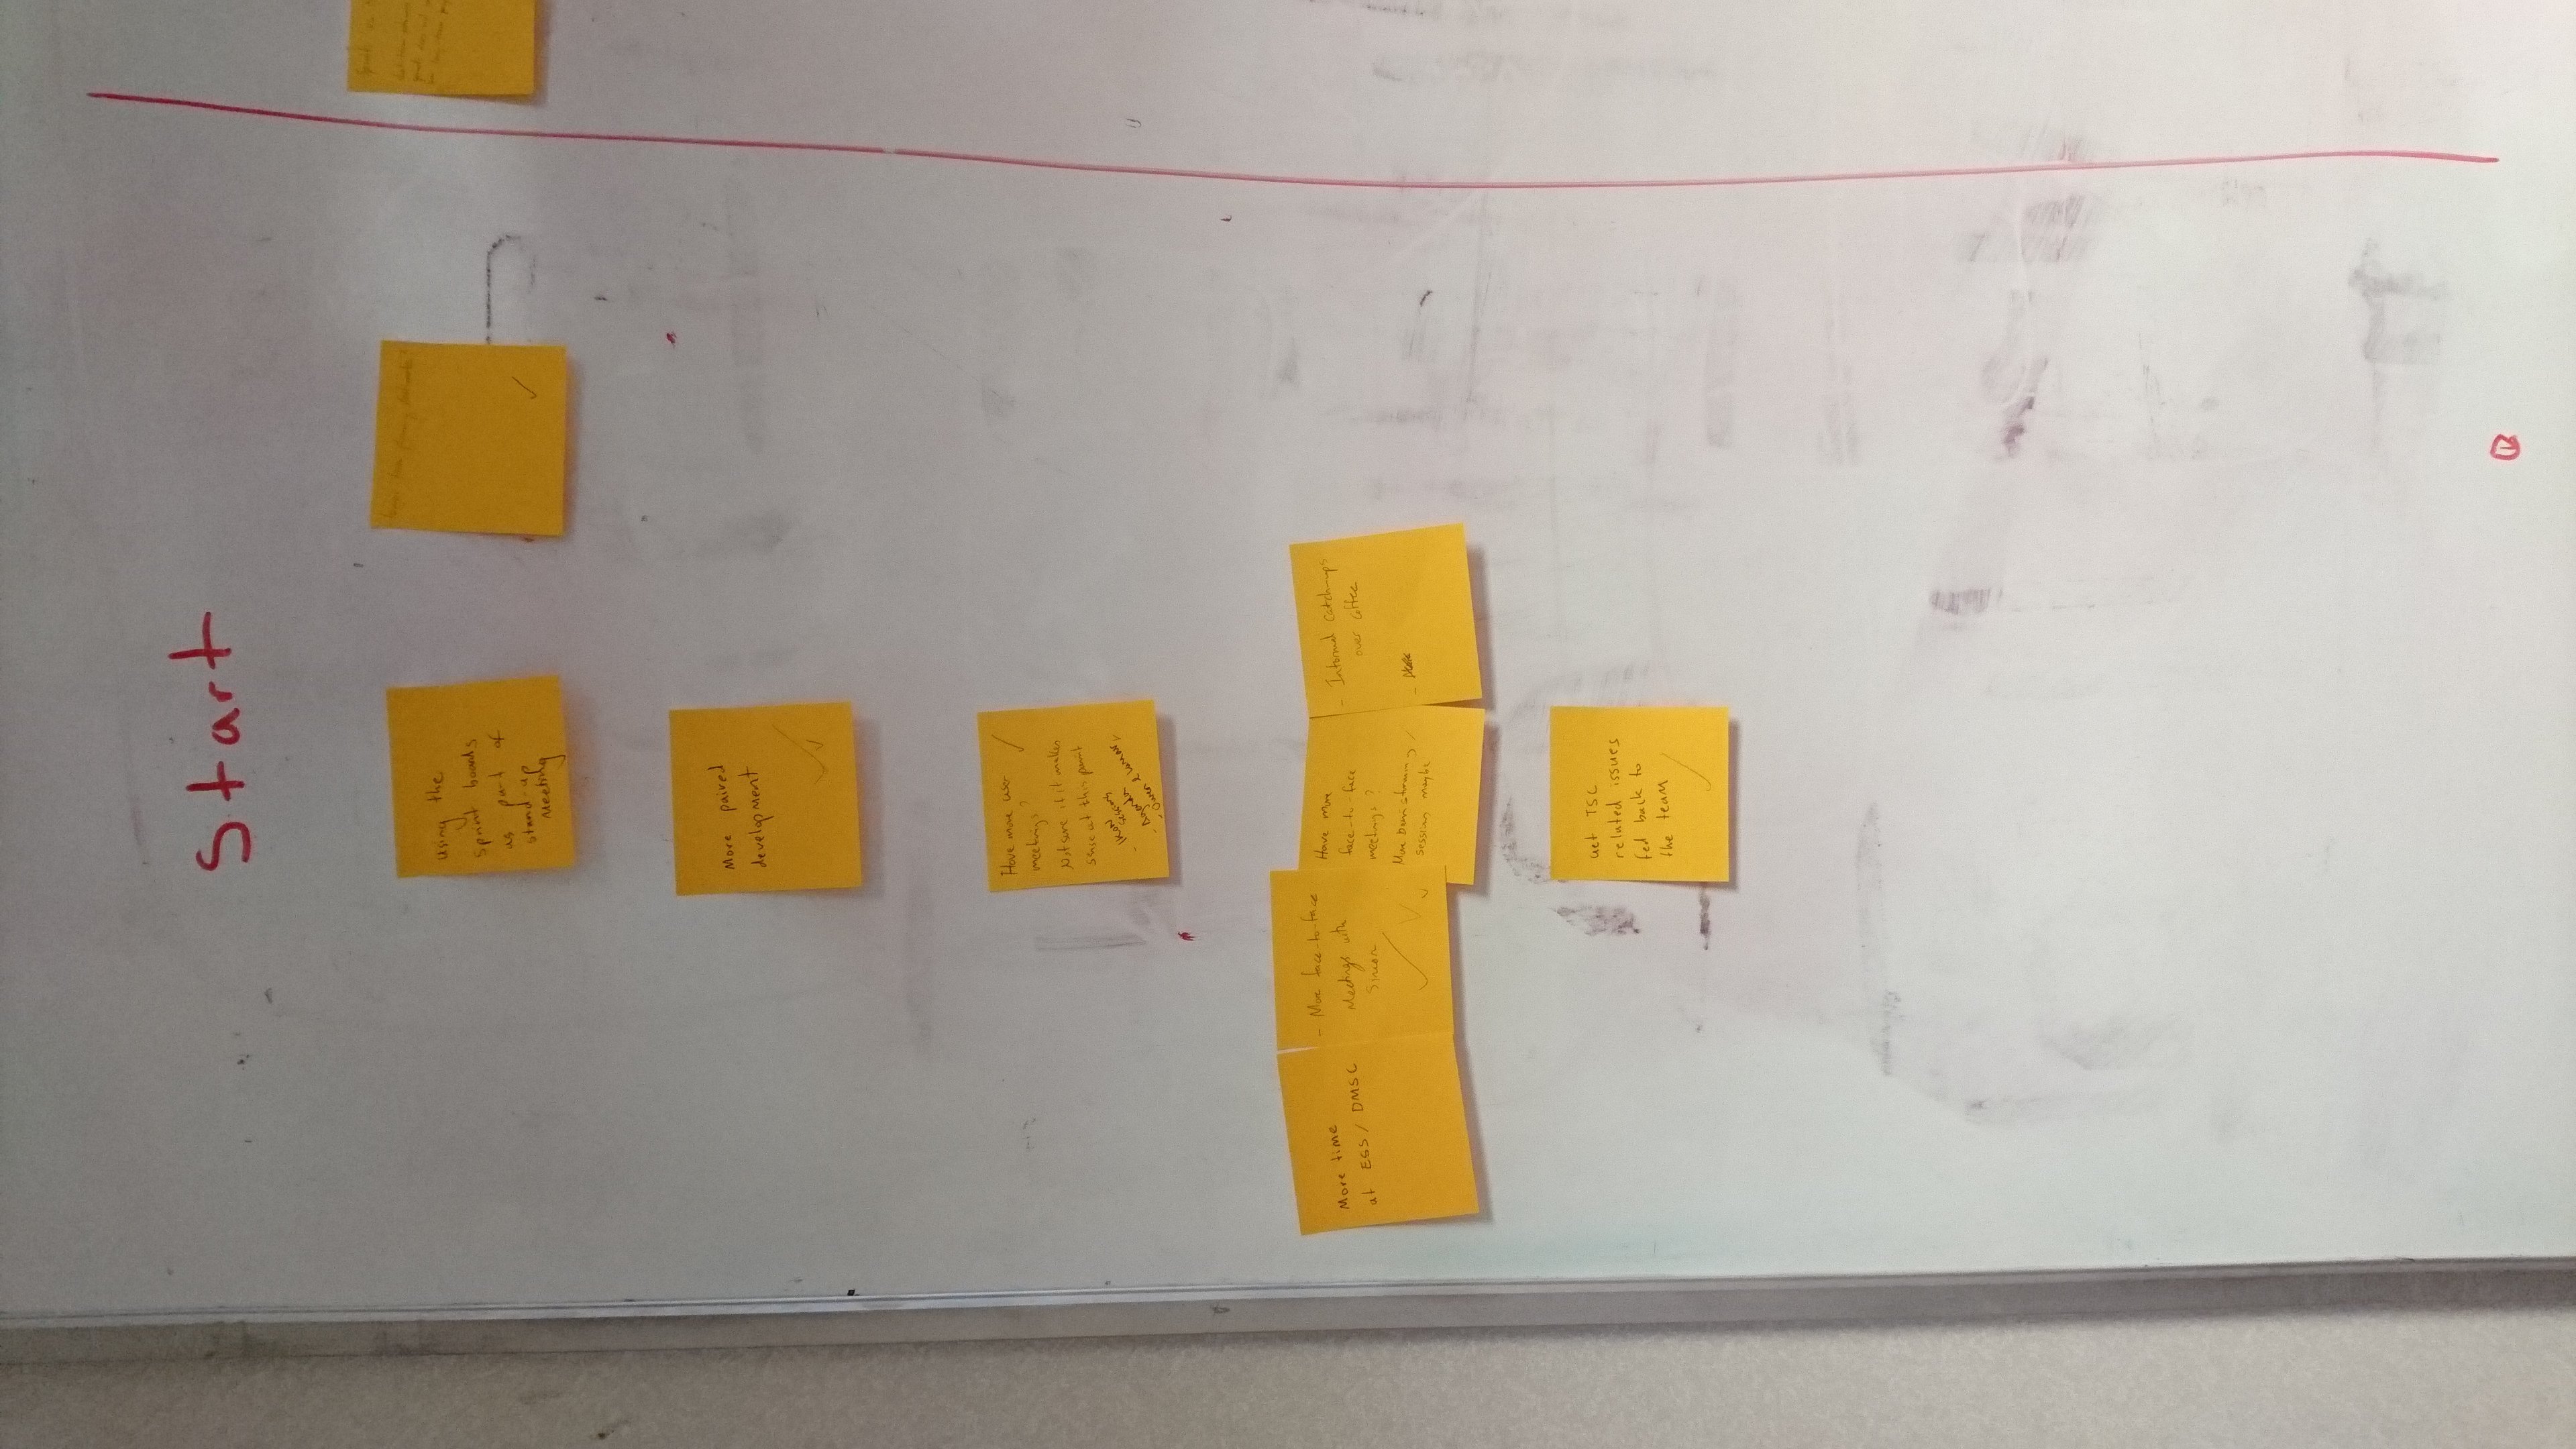 Start
using the
sprint boards
as part of
stand-up
Meeting
More paired
development
Have more user
meetings?
Not sure if it makes
sense at this point
- IKON
sessions
- Agenda
- Owen &
More time
at ESS / DMSC
- More face-to-face
Meetings with
Simon
Have more
face-to-face
meetings?
More brainstorming
sessions maybe
- Informal catch-ups
over coffee
-
Get TSC
related issues
fed back to
the team